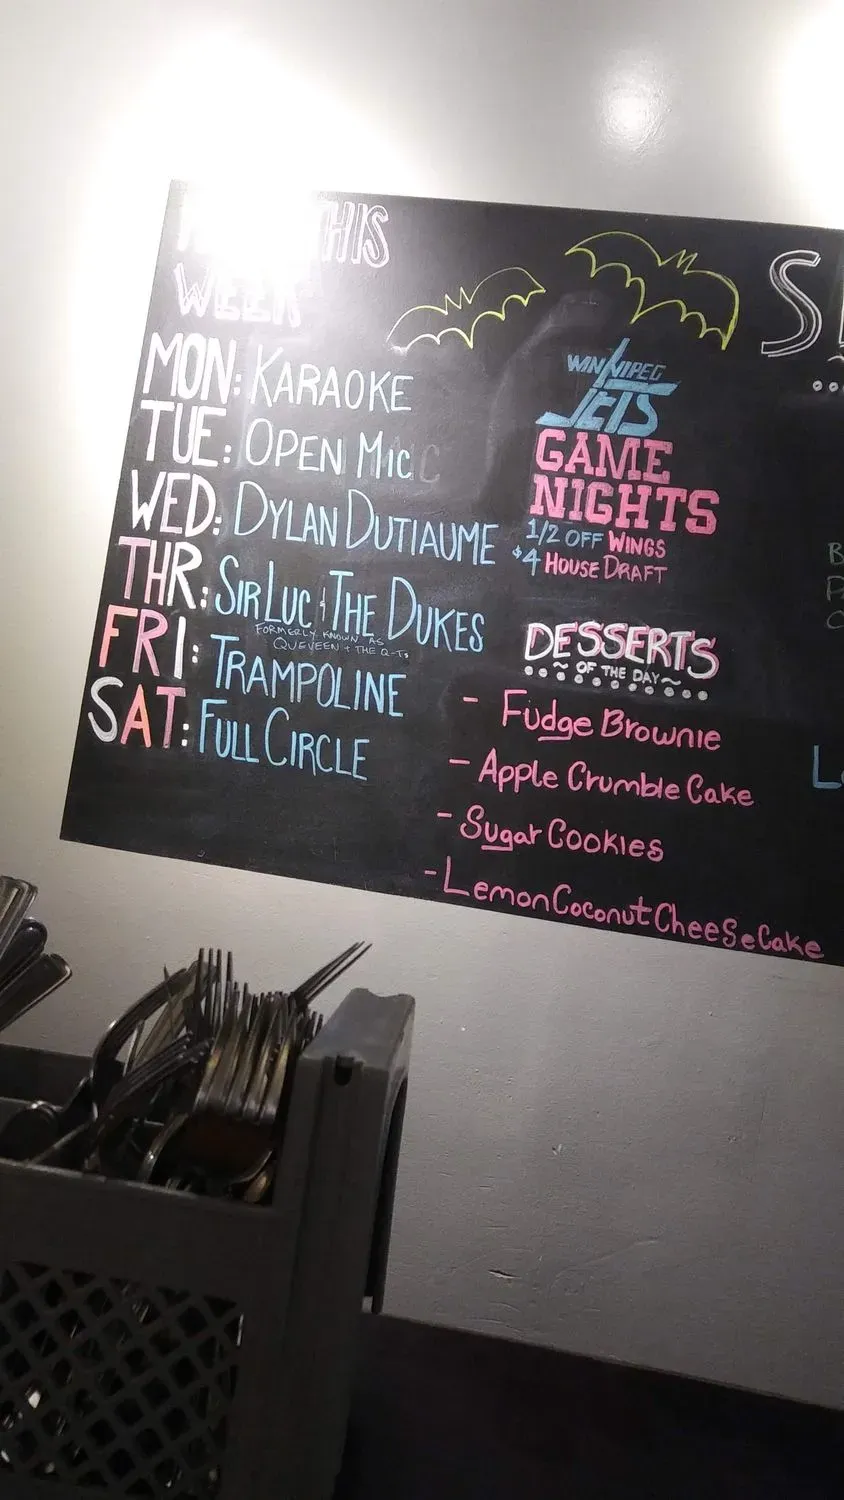 THIS
WEEK
MON: KARAOKE
TUE: OPEN MIC
WED: DYLAN DUTIAUME
THR: SIR LUC + THE DUKES
FORMERLY KNOWN AS
QUEVEEN + THE Q-Ts
FRI: TRAMPOLINE
SAT: FULL CIRCLE
WINNIPEG
JETS
GAME
NIGHTS
1/2 OFF WINGS
$4 HOUSE DRAFT
DESSERTS
~ OF THE DAY ~
- Fudge Brownie
- Apple Crumble Cake
- Sugar Cookies
- Lemon Coconut CheeSeCake
S